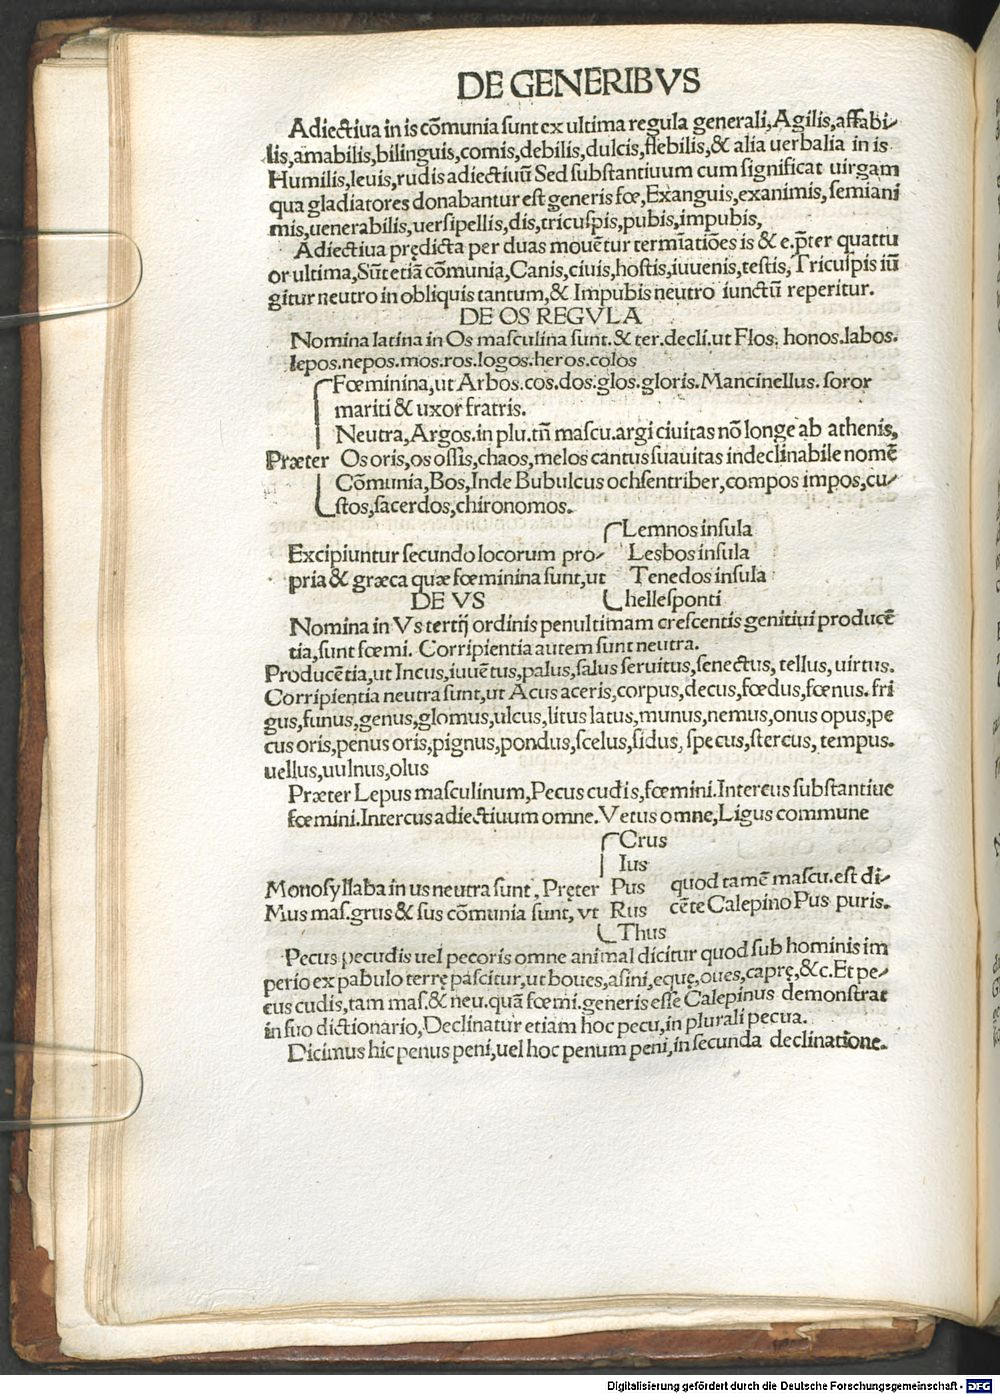 DE GENERIBVS
Adiectiua in is cõmunia ſunt ex ultima regula generali, Agilis, affabi-
lis, amabilis, bilinguis, comis, debilis, dulcis, flebilis, & alia uerbalia in is
Humilis, leuis, rudis adiectiuũ Sed ſubſtantiuum cum ſignificat uirgam
qua gladiatores donabantur eſt generis fœ, Exanguis, exanimis, ſemiani
mis, uenerabilis, uerſipellis, dis, tricuſpis, pubis, impubis,
Adiectiua prędicta per duas mouẽtur termĩatiões is & e. p̃ter quattu
or ultima, Sũt etiã cõmunia, Canis, ciuis, hoſtis, iuuenis, teſtis, Tricuſpis iũ
gitur neutro in obliquis tantum, & Impubis neutro iunctũ reperitur.
DE OS REGVLA
Nomina latina in Os maſculina ſunt. & ter. decli. ut Flos. honos. labos.
lepos. nepos. mos. ros. logos. heros. colos
Fœminina, ut Arbos. cos. dos. glos. gloris. Mancinellus. ſoror
mariti & uxor fratris.
Neutra, Argos. in plu. tñ maſcu. argi ciuitas nõ longe ab athenis,
Præter Os oris, os oſſis, chaos, melos cantus ſuauitas indeclinabile nomẽ
Cõmunia, Bos, Inde Bubulcus ochſentriber, compos impos, cu-
ſtos, ſacerdos, chironomos.
Lemnos inſula
Excipiuntur ſecundo locorum pro- Lesbos inſula
pria & græca quæ fœminina ſunt, ut Tenedos inſula
DE VS helleſponti
Nomina in Vs tertij ordinis penultimam creſcentis genitiui producẽ
tia, ſunt fœmi. Corripientia autem ſunt neutra.
Producẽtia, ut Incus, iuuẽtus, palus, ſalus ſeruitus, ſenectus, tellus, uirtus.
Corripientia neutra ſunt, ut Acus aceris, corpus, decus, fœdus, fœnus. fri
gus, funus, genus, glomus, ulcus, litus latus, munus, nemus, onus opus, pe
cus oris, penus oris, pignus, pondus, ſcelus, ſidus, ſpecus, ſtercus, tempus.
uellus, uulnus, olus
Præter Lepus maſculinum, Pecus cudis, fœmini. Intercus ſubſtantiue
fœmini. Intercus adiectiuum omne. Vetus omne, Ligus commune
Crus
Ius
Monoſyllaba in us neutra ſunt, Pręter Pus quod tamẽ maſcu. eſt di-
Mus maſ. grus & ſus cõmunia ſunt, vt Rus cẽte Calepino Pus puris.
Thus
Pecus pecudis uel pecoris omne animal dicitur quod ſub hominis im
perio ex pabulo terrę paſcitur, ut boues, aſini, equę, oues, caprę, &c. Et pe-
cus cudis, tam maſ. & neu. quã fœmi. generis eſſe Calepinus demonſtrat
in ſuo dictionario, Declinatur etiam hoc pecu, in plurali pecua.
Dicimus hic penus peni, uel hoc penum peni, in ſecunda declinatione.
Digitalisierung gefördert durch die Deutsche Forschungsgemeinschaft - DFG